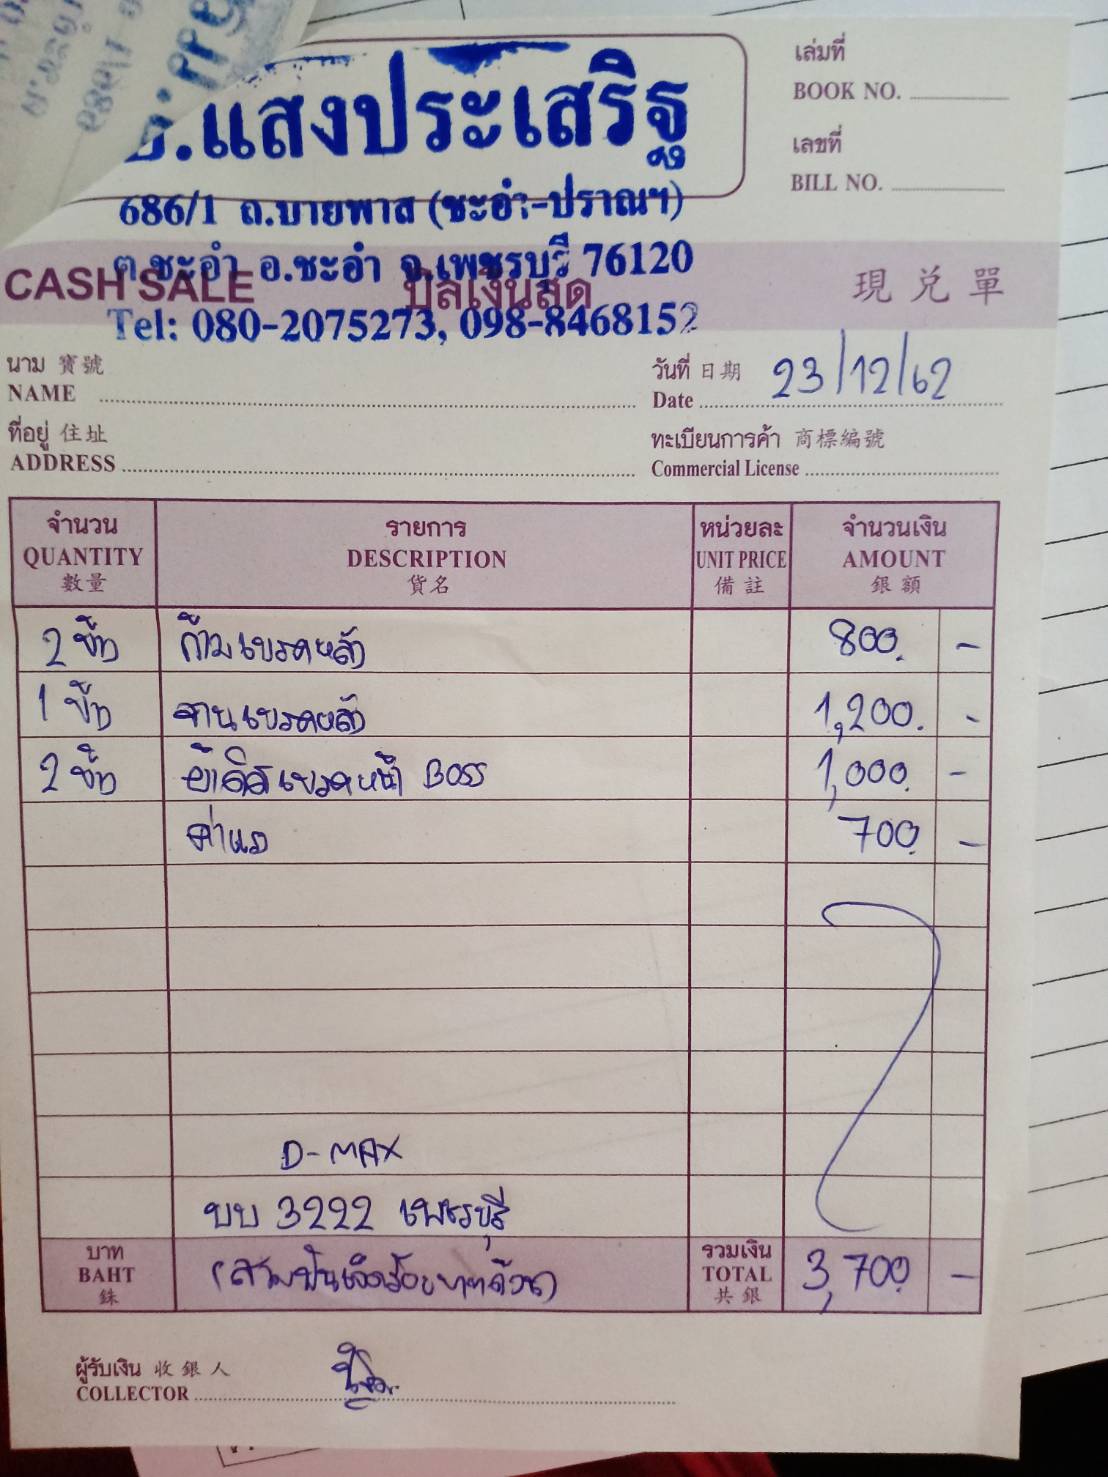 .แสงประเสริฐ
686/1 ถ.บายพาส (ชะอำ-ปราณฯ)
ต.ชะอำ อ.ชะอำ จ.เพชรบุรี 76120
Tel: 080-2075273, 098-8468152
เล่มที่
BOOK NO.
เลขที่
BILL NO.
CASH SALE บิลเงินสด 現兌單
นาม 寶號
NAME
วันที่ 日期
Date 23/12/62
ที่อยู่ 住址
ADDRESS
ทะเบียนการค้า 商標編號
Commercial License
จำนวน รายการ หน่วยละ จำนวนเงิน
QUANTITY DESCRIPTION UNIT PRICE AMOUNT
數量 貨名 備註 銀額
2 ชิ้น ก้ามเบรคหลัง 800. -
1 ชิ้น จานเบรคหลัง 1,200. -
2 ชิ้น ผ้าดิสเบรคหน้า BOSS 1,000 -
ค่าแรง 700. -
D-MAX
บบ 3222 เพชรบุรี
บาท
BAHT
銖
(สามพันเจ็ดร้อยบาทถ้วน)
รวมเงิน
TOTAL
共銀
3,700. -
ผู้รับเงิน 收銀人
COLLECTOR